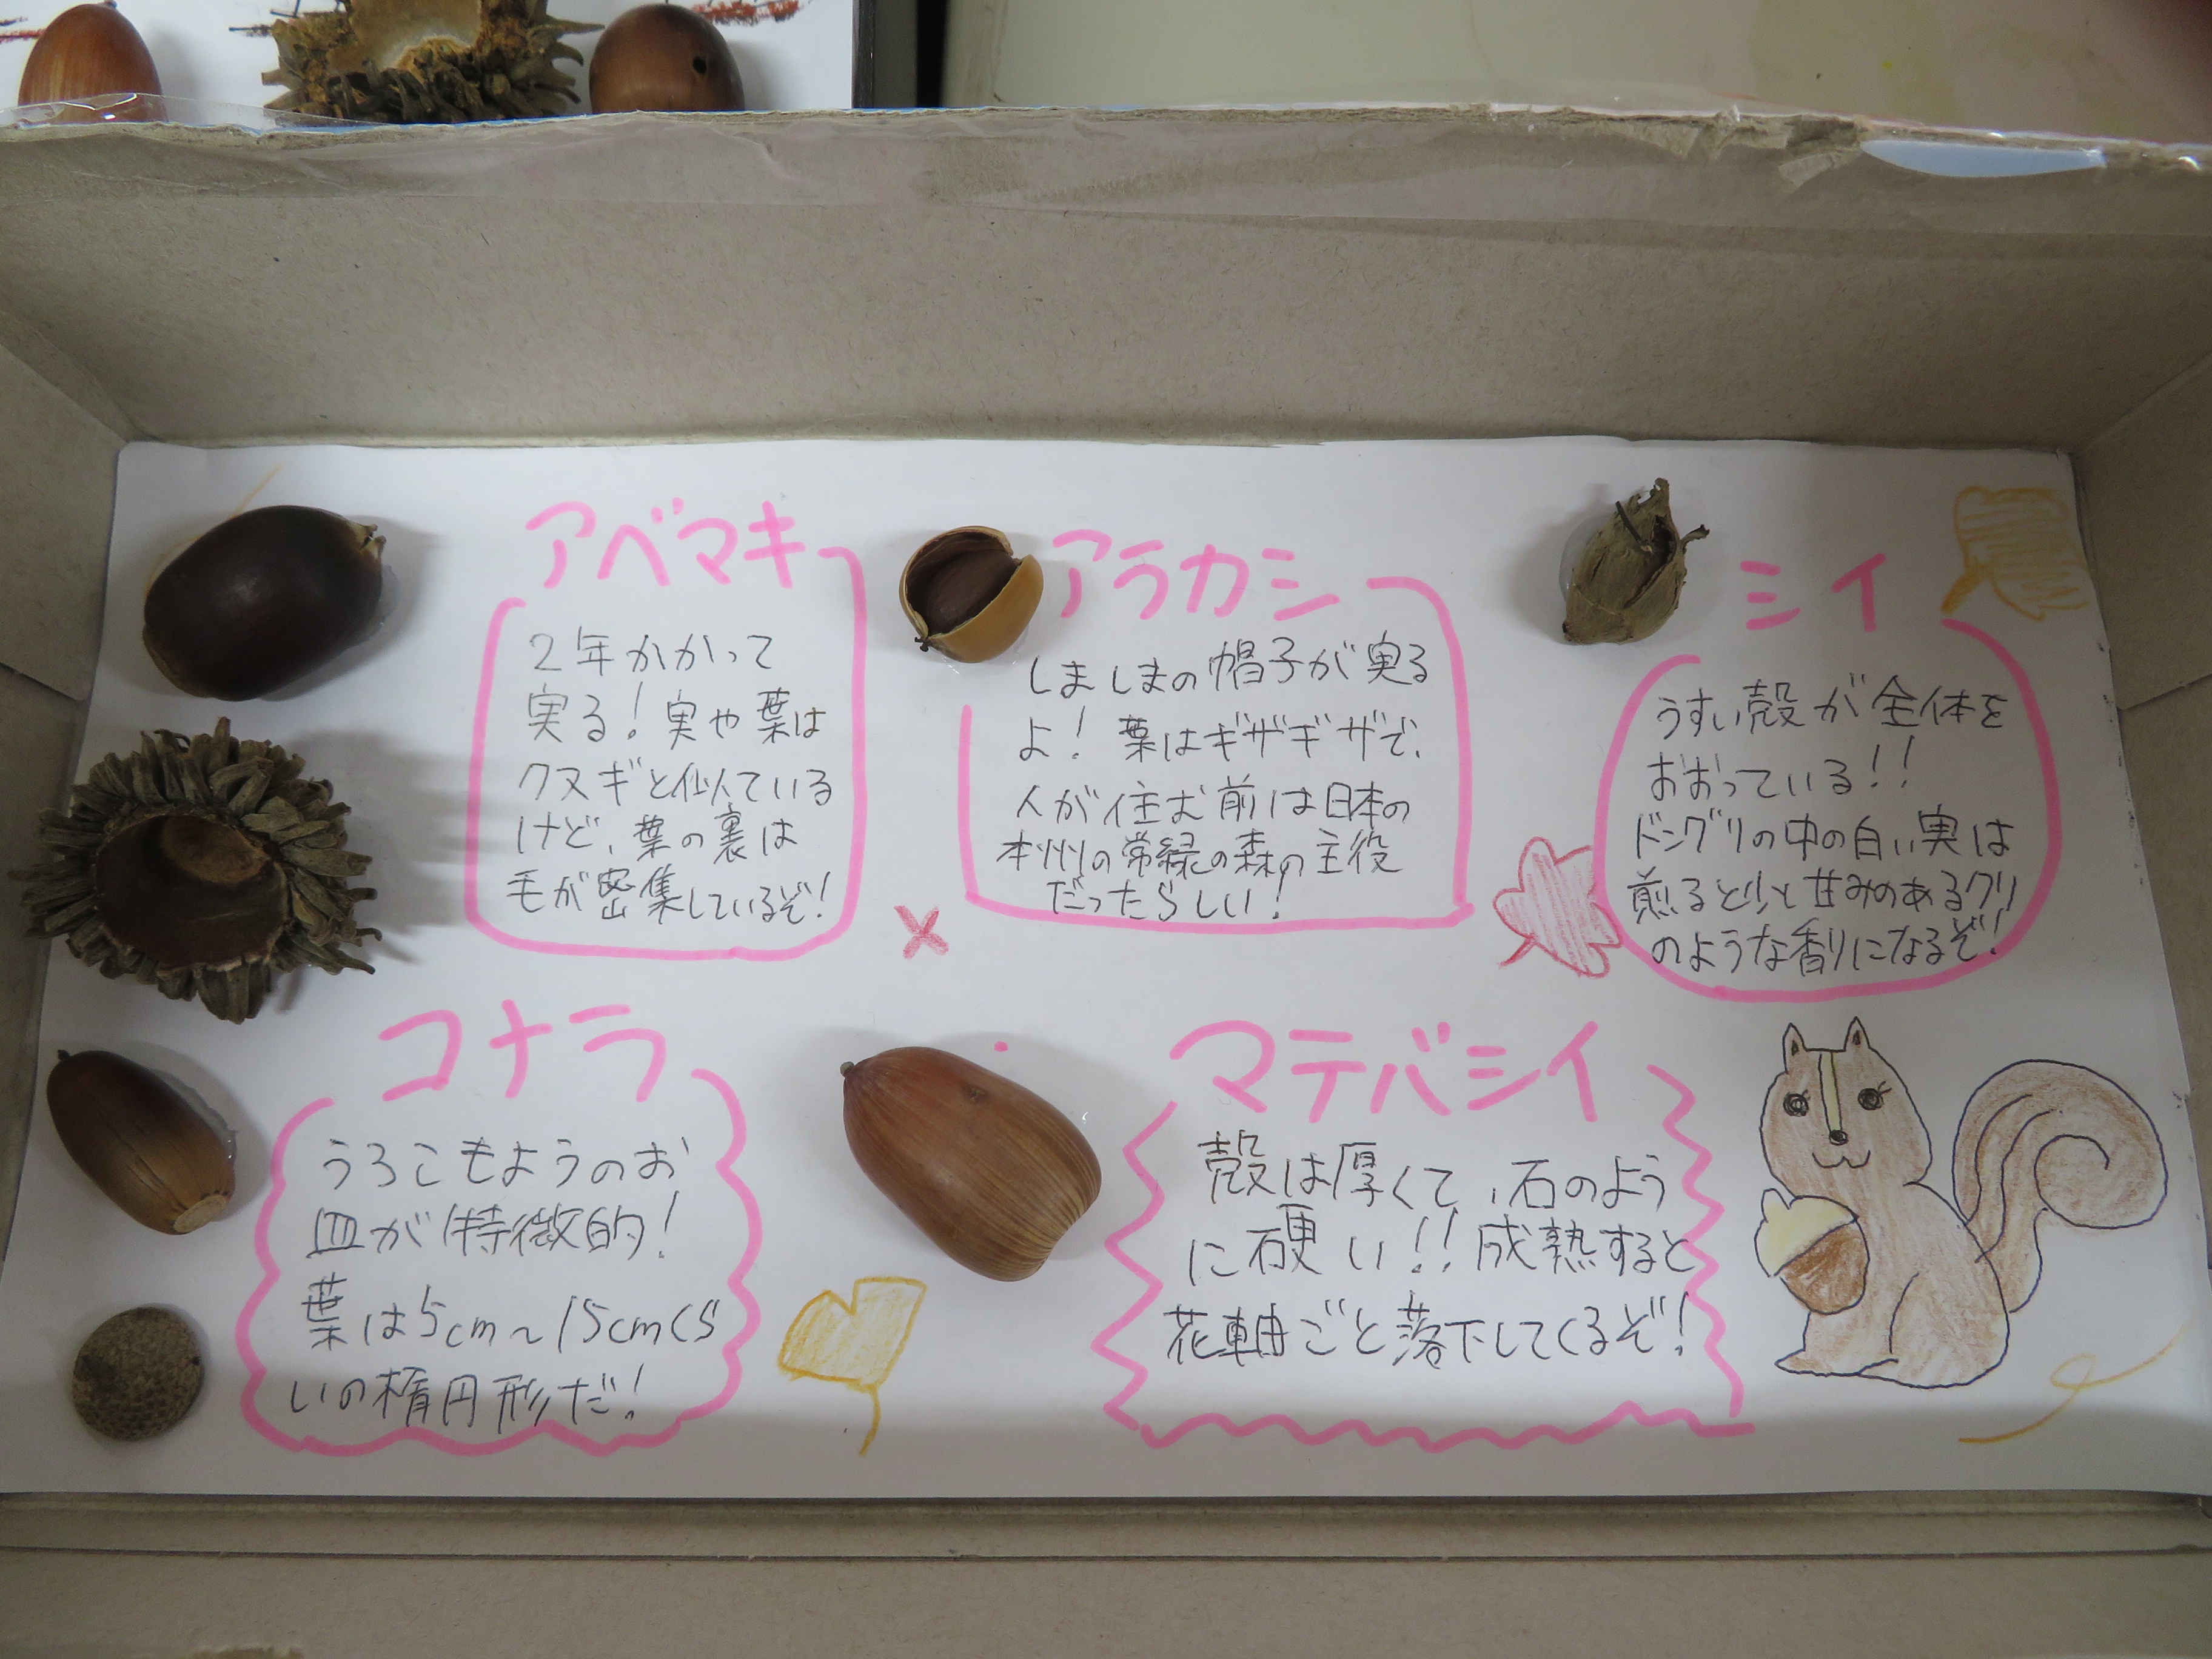 アベマキ
2年かかって
実る!実や葉は
クヌギと似ている
けど、葉の裏は
毛が密集しているぞ!
アラカシ
しましまの帽子が実る
よ!葉はギザギザで、
人が住む前は日本の
本州の常緑の森の主役
だったらしい!
シイ
うすい殻が全体を
おおっている!!
ドングリの中の白い実は
煎ると少と甘みのあるクリ
のような香りになるぞ!
コナラ
うろこもようのお
皿が特徴的!
葉は5cm~15cmくら
いの楕円形だ!
マテバシイ
殻は厚くて、石のよう
に硬い!!成熟すると
花軸ごと落下してくるぞ!